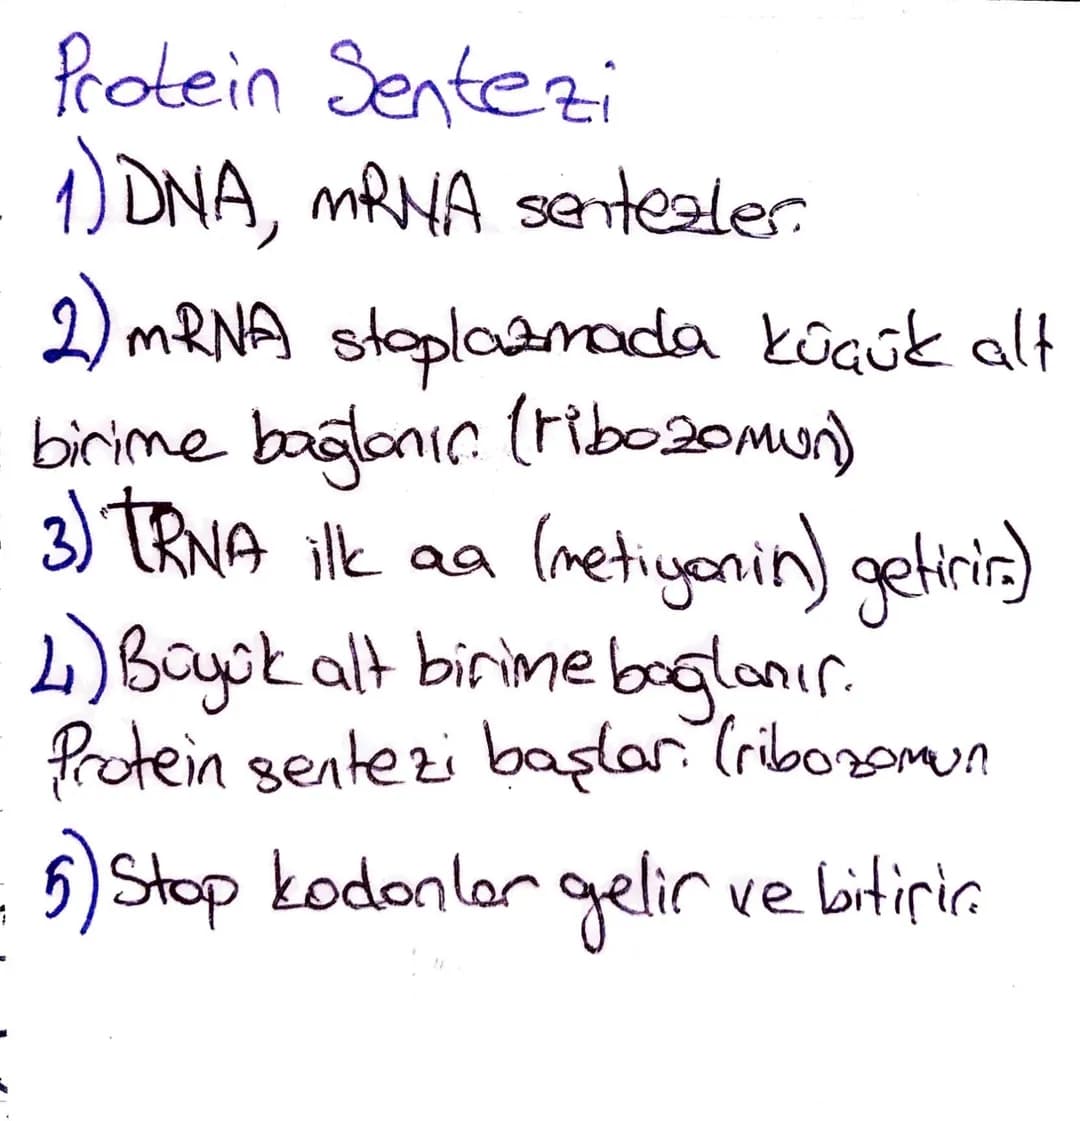 Protein Sentezi
1) DNA, mRNA sentezler.
2) mRNA stoplazmada küçük alt
birime bağlanır. (ribozomun)
3) tRNA ilk aa (metiyonin) getirir.)
4) Büyük alt birime bağlanır.
Protein sentezi başlar. (ribozomun
5) Stop kodonlar gelir ve bitirir.